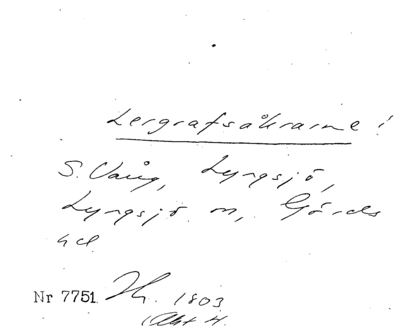 Lergrafsåkrarne!
S. Vång, Lyngsjö,
Lyngsjö sn, Gärds
hd
Nr 7751 1803